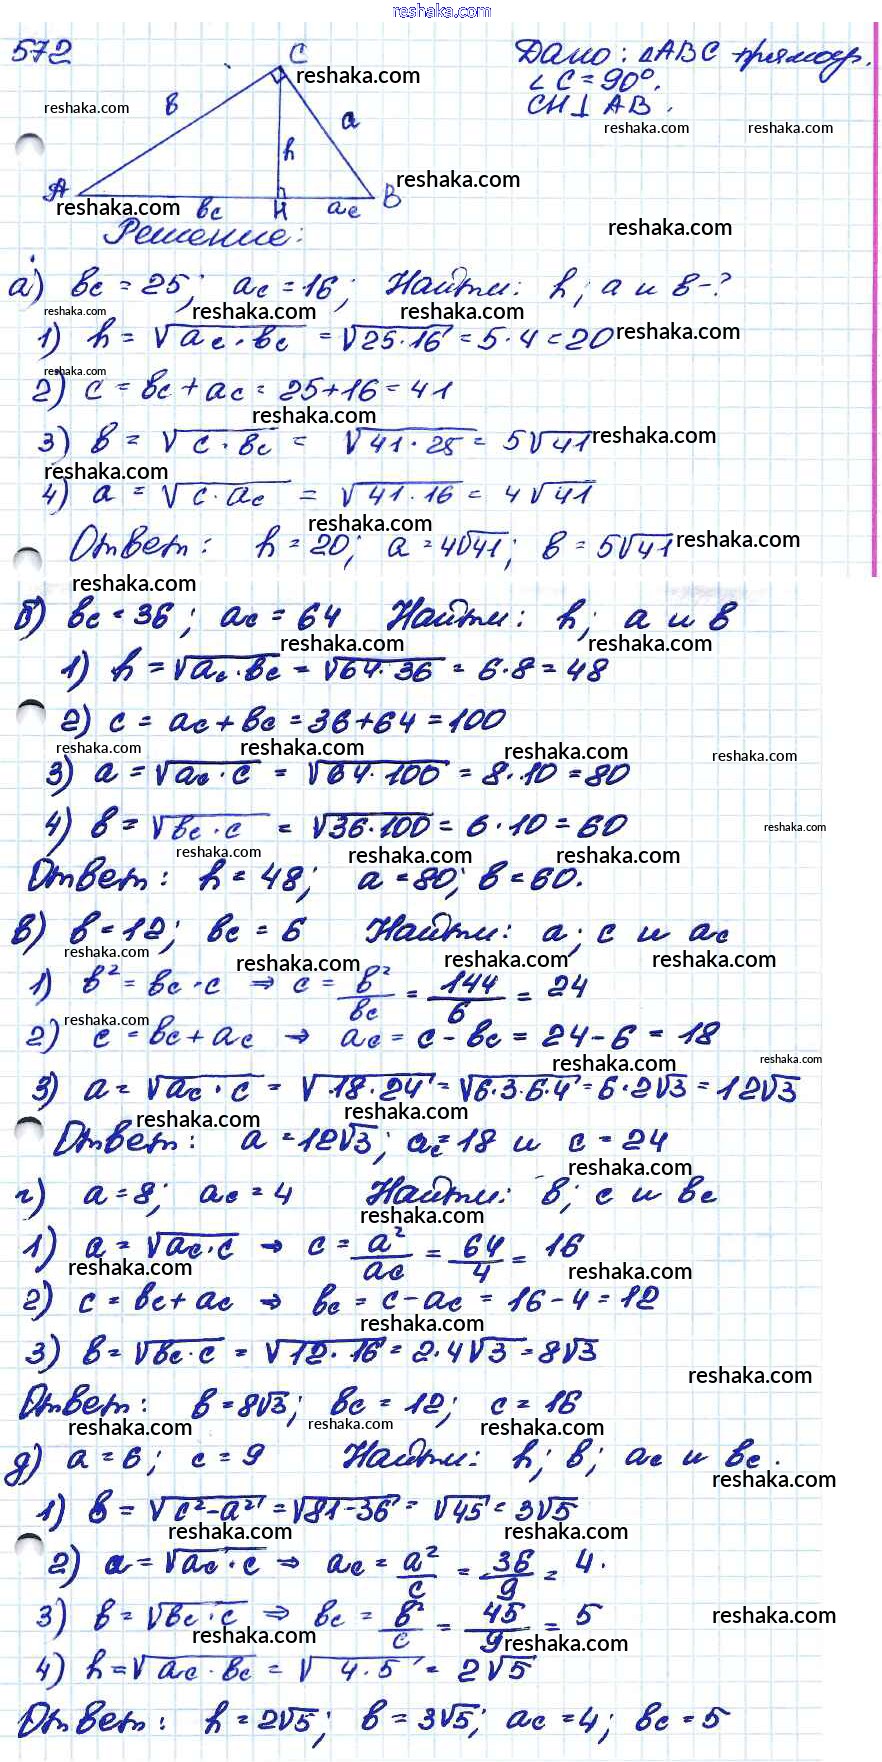 reshaka.com
572
C
Дано: △ABC прямоуг.
reshaka.com
∠C = 90°.
reshaka.com
в
CH⊥AB.
a
reshaka.com
reshaka.com
h
A
reshaka.com
B
reshaka.com
вc
H
ac
Решение:
reshaka.com
а) вc = 25; ac = 16; Найти: h; a и в-?
reshaka.com
reshaka.com
reshaka.com
1) h = √ac·вc = √25·16 = 5·4 = 20
reshaka.com
reshaka.com
2) c = вc + ac = 25+16 = 41
reshaka.com
3) в = √c·вc = √41·25 = 5√41
reshaka.com
reshaka.com
4) a = √c·ac = √41·16 = 4√41
reshaka.com
Ответ: h = 20; a = 4√41; в = 5√41
reshaka.com
reshaka.com
б) вc = 36; ac = 64 Найти: h; a и в
reshaka.com
reshaka.com
1) h = √ac·вc = √64·36 = 6·8 = 48
2) c = ac + вc = 36+64 = 100
reshaka.com
reshaka.com
reshaka.com
reshaka.com
3) a = √ac·c = √64·100 = 8·10 = 80
4) в = √вc·c = √36·100 = 6·10 = 60
reshaka.com
reshaka.com
reshaka.com
reshaka.com
Ответ: h = 48; a = 80; в = 60.
в) в = 12; вc = 6 Найти: a; c и ac
reshaka.com
reshaka.com
reshaka.com
reshaka.com
1) в² = вc·c ⇒ c = в²/вc = 144/6 = 24
reshaka.com
2) c = вc + ac → ac = c - вc = 24-6 = 18
reshaka.com
reshaka.com
3) a = √ac·c = √18·24 = √6·3·6·4 = 6·2√3 = 12√3
reshaka.com
reshaka.com
Ответ: a = 12√3; ac = 18 и c = 24
reshaka.com
г) a = 8; ac = 4 Найти: в; c и вc
reshaka.com
1) a = √ac·c → c = a²/ac = 64/4 = 16
reshaka.com
reshaka.com
2) c = вc + ac → вc = c - ac = 16-4 = 12
reshaka.com
3) в = √вc·c = √12·16 = 2·4√3 = 8√3
reshaka.com
Ответ: в = 8√3; вc = 12; c = 16
reshaka.com
reshaka.com
reshaka.com
д) a = 6; c = 9 Найти: h; в; ac и вc.
reshaka.com
1) в = √c²-a² = √81-36 = √45 = 3√5
reshaka.com
reshaka.com
2) a = √ac·c ⇒ ac = a²/c = 36/9 = 4.
3) в = √вc·c ⇒ вc = в²/c = 45/9 = 5
reshaka.com
reshaka.com
reshaka.com
4) h = √ac·вc = √4·5 = 2√5
Ответ: h = 2√5; в = 3√5; ac = 4; вc = 5